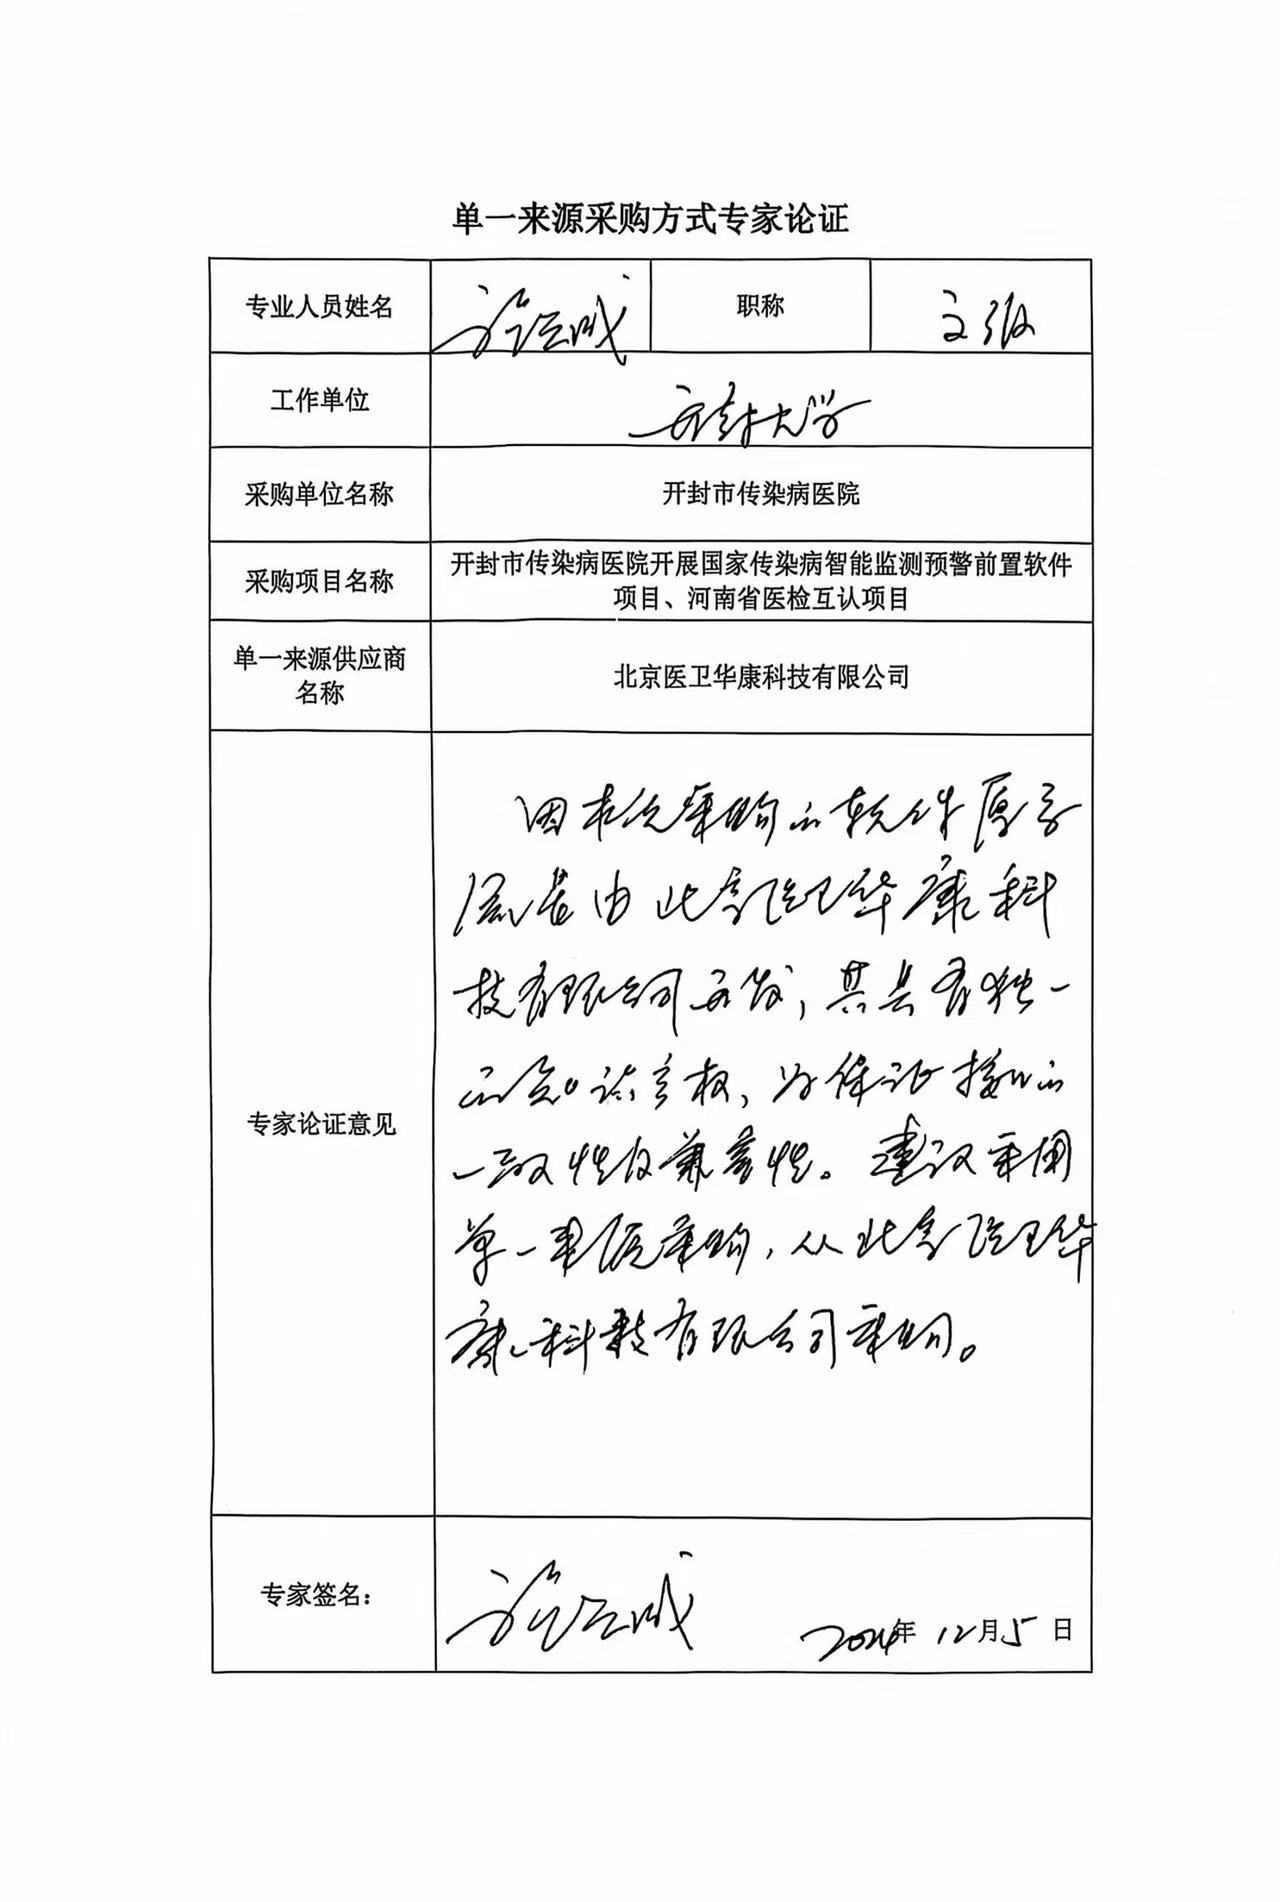 单一来源采购方式专家论证
专业人员姓名 职称
工作单位 开封大学
采购单位名称 开封市传染病医院
采购项目名称 开封市传染病医院开展国家传染病智能监测预警前置软件
项目、河南省医检互认项目
单一来源供应商
名称
北京医卫华康科技有限公司
专家论证意见
因本次采购的软件原
是由北京医卫华康科
技有限公司开发，其具有独一
的知识产权，为保证接口的
一致性及兼容性。建议采用
单一来源采购，从北京医卫华
康科技有限公司采购。
专家签名：
2024年 12月5日